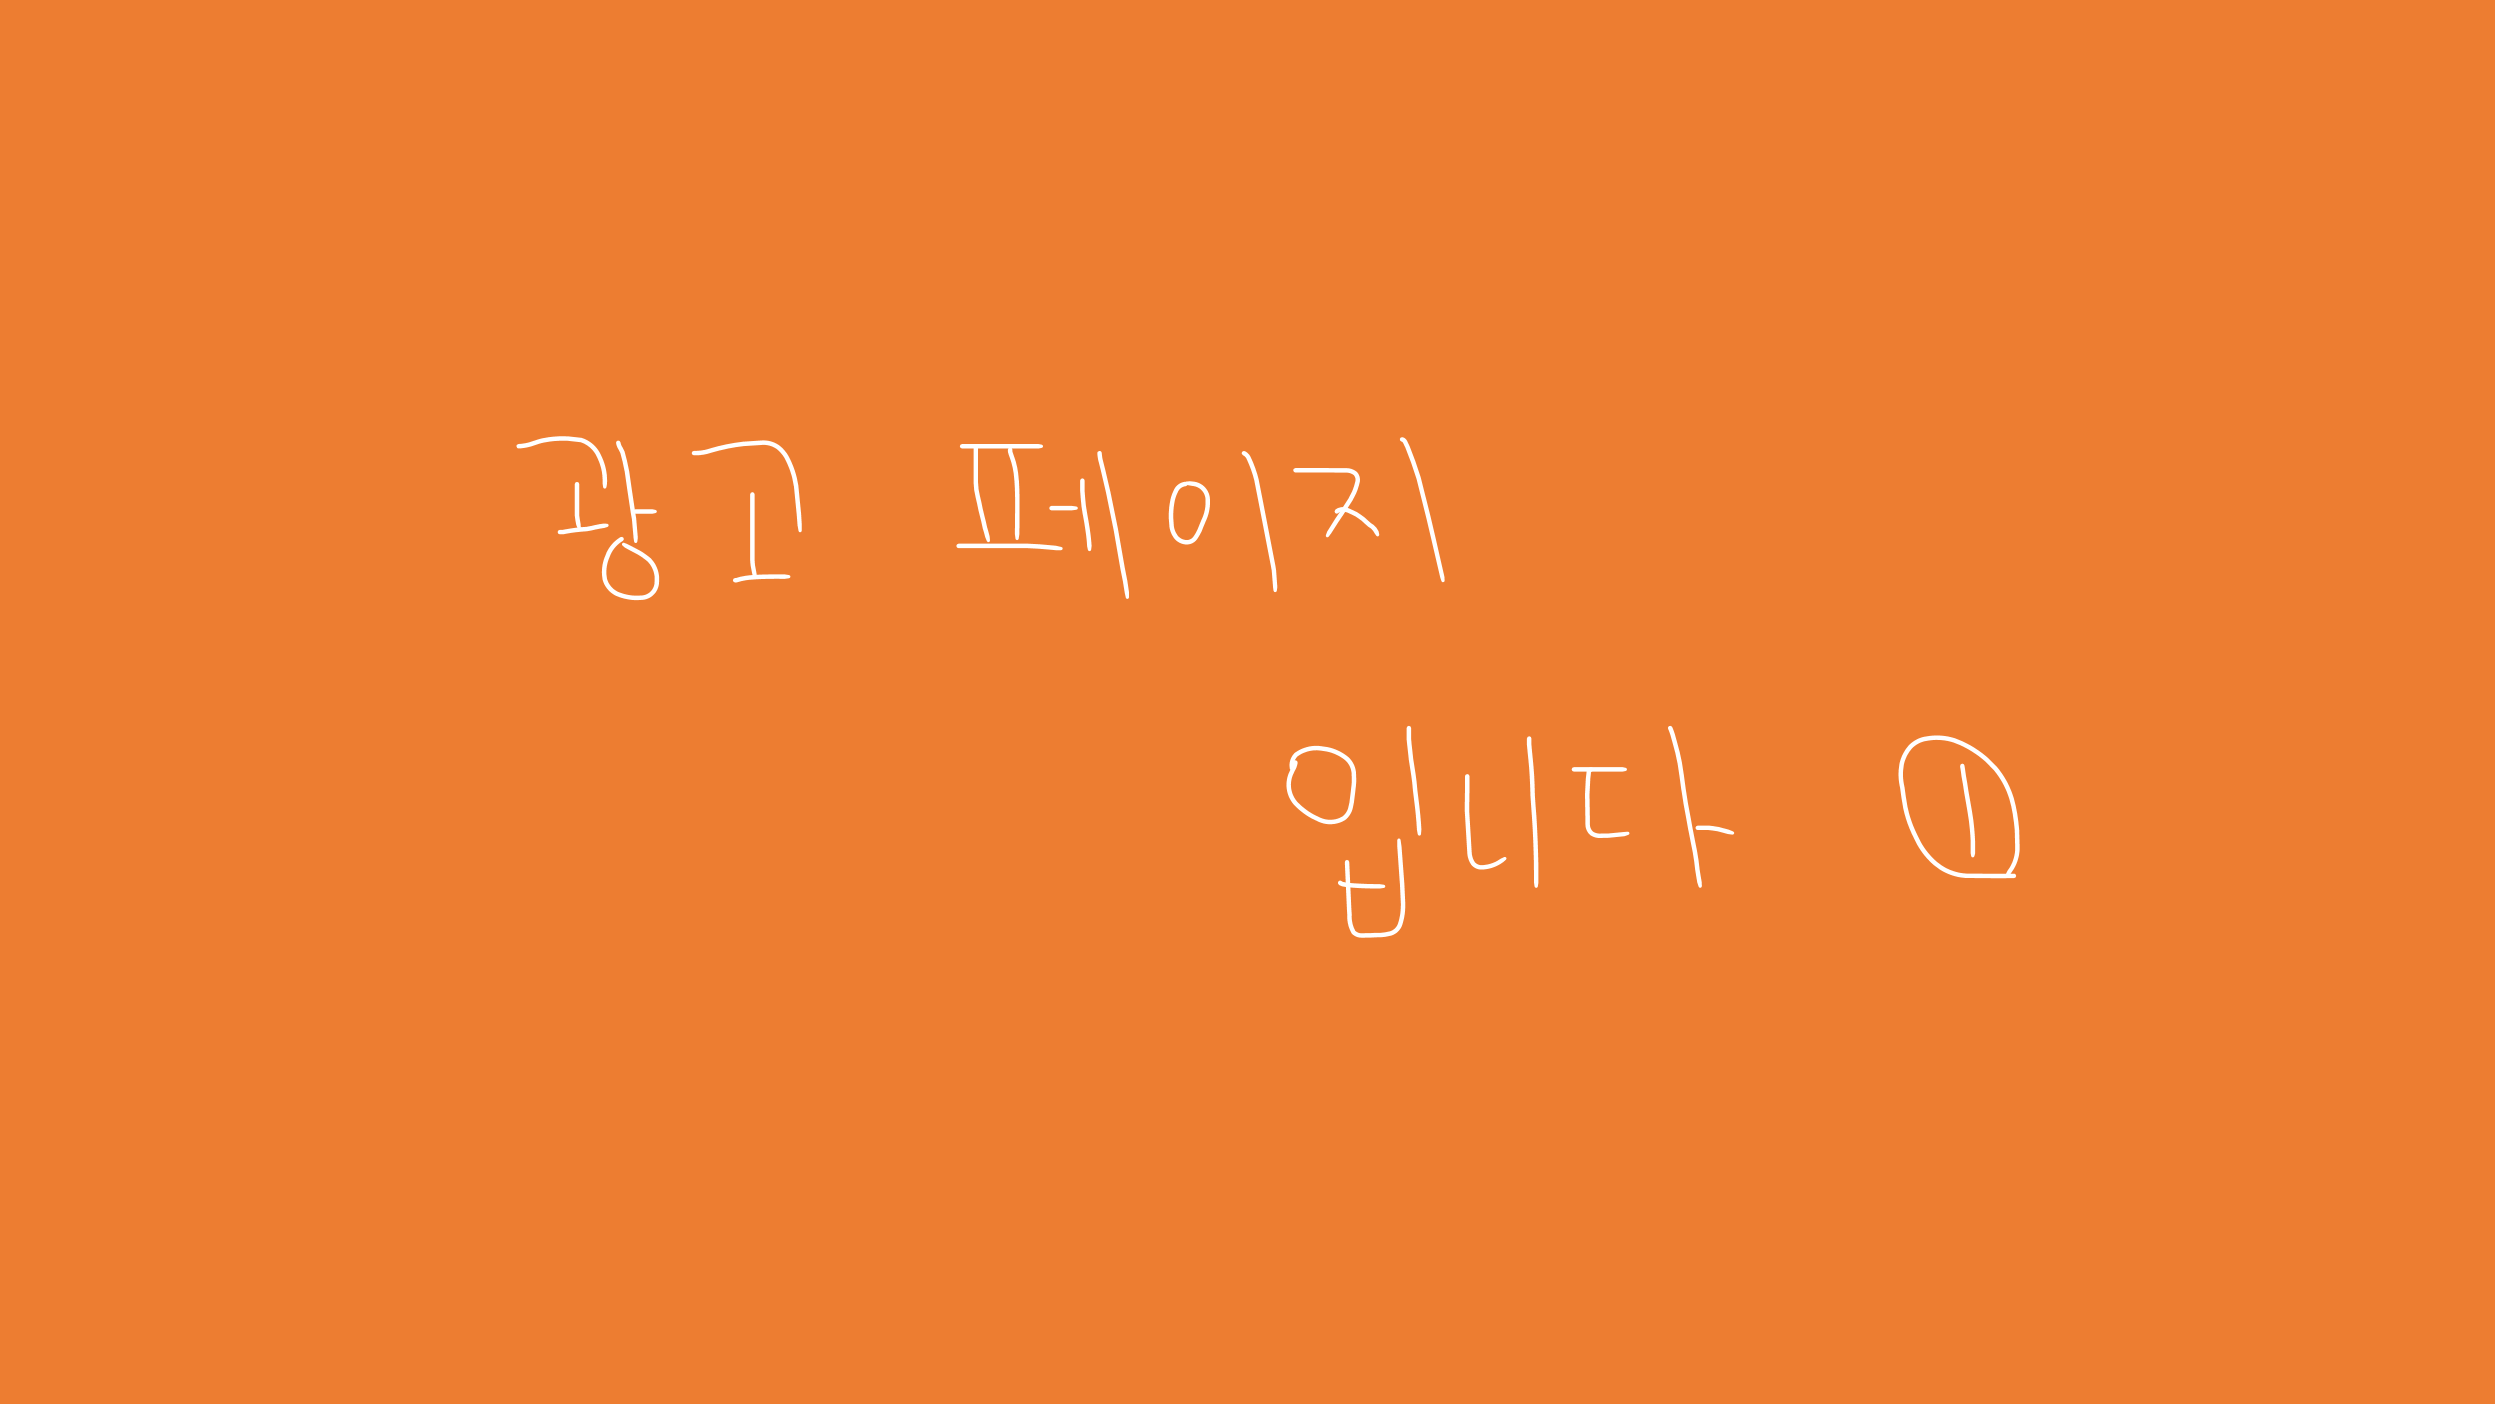 광고 페이지
입니다 ①